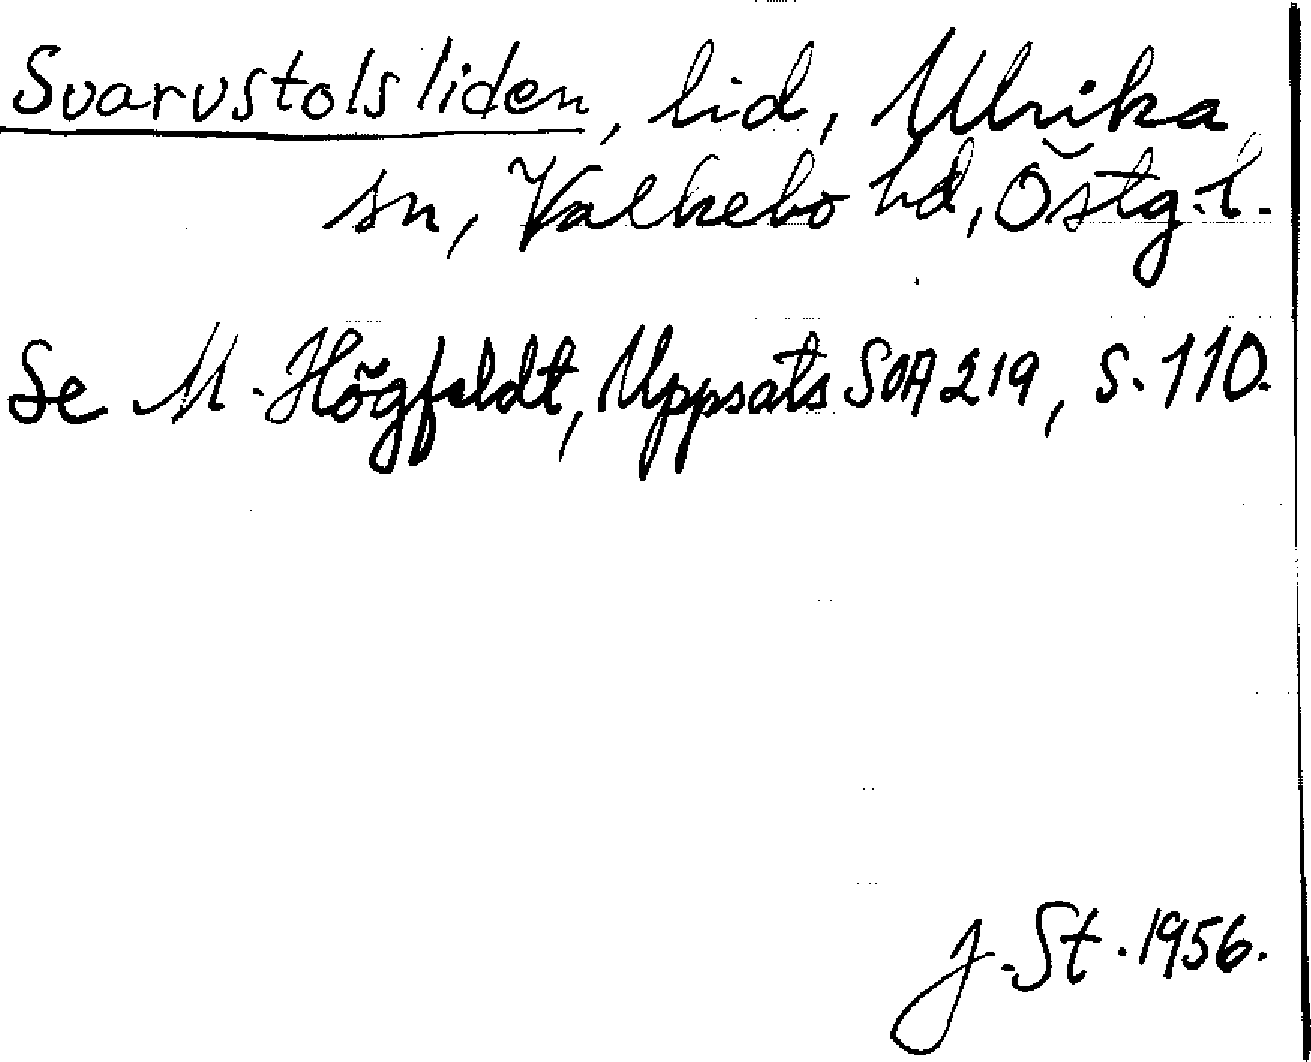 Svarvstolsliden, lid, Ulrika
sn, Valkebo hd, Östg.l.
Se M. Högfeldt, Uppsats SOA 219, s. 110.
J. St. 1956.